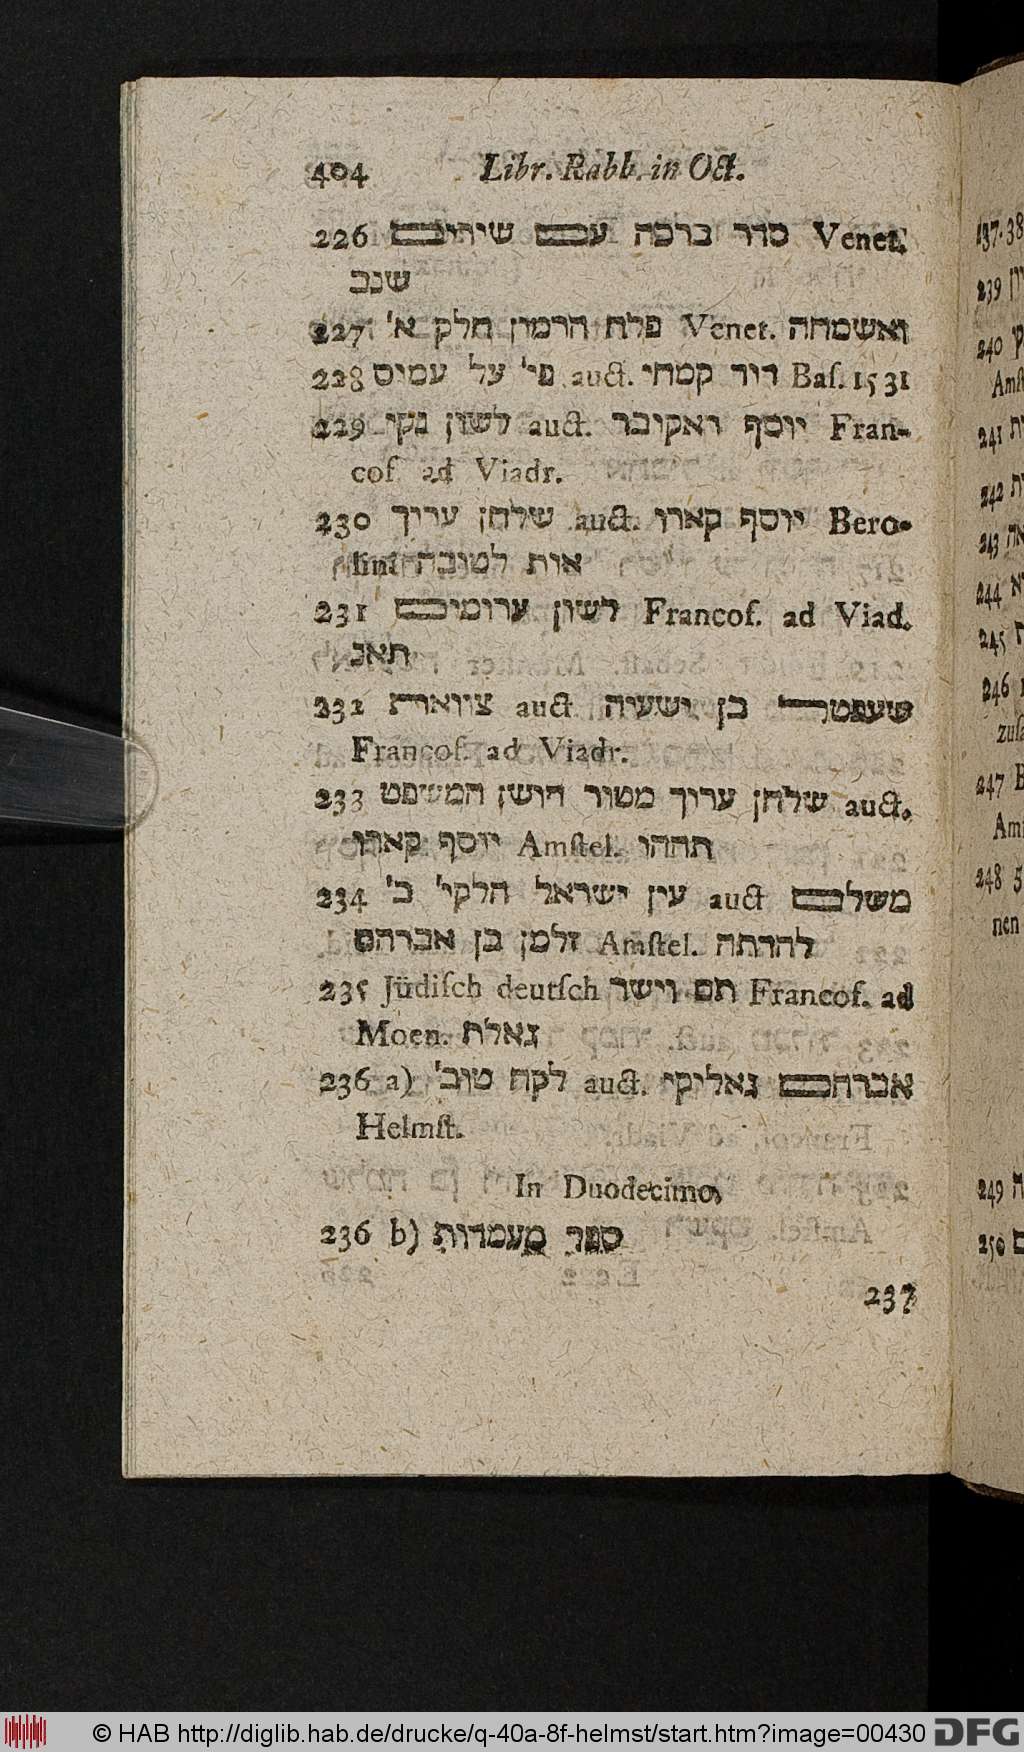 404 Libr. Rabb. in Oct.
226 סדר ברכה עם שירים Venet.
שנב
227 פלח הרמון חלק א' Venet. ואשמחה
228 פי' על עמיס auct. דוד קמחי Baſ. 1531
229 לשון נקי auct. יוסף ואקובר Fran-
cof. ad Viadr.
230 שלחן ערוך auct. יוסף קארו Bero-
lini אות לטובה
231 לשון ערומים Francof. ad Viad.
תאנ
232 צוואות auct בן ישעיה שעפטל
Francof. ad Viadr.
233 שלחן ערוך מטור חושן המשפט auct.
יוסף קארו Amſtel. תההו
234 עין ישראל חלקי' ב' auct משלם
זלמן בן אברהם Amſtel. להדתה
235 Jüdiſch deutſch תם וישר Francof. ad
Moen. גאלת
236 a) לקח טוב' auct. אברהם גאליקי
Helmſt.
In Duodecimo,
236 b) ספר מעמדות
237
137.38
239
240
Amſt
241
242
243
244
245
246
zuſa
247
Amſ
248
nen
249
250
© HAB http://diglib.hab.de/drucke/q-40a-8f-helmst/start.htm?image=00430 DFG